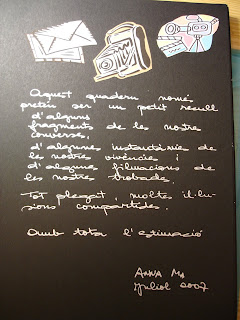 Aquest quadern només
pretén ser un petit recull
d'alguns
fragments de les nostres
converses,
d'algunes instantànies de
les nostres vivències i
d'algunes filmacions de
les nostres trobades.
Tot plegat, moltes il·lu-
sions compartides.
Amb tota l'estimació
ANNA Mª
Juliol 2007